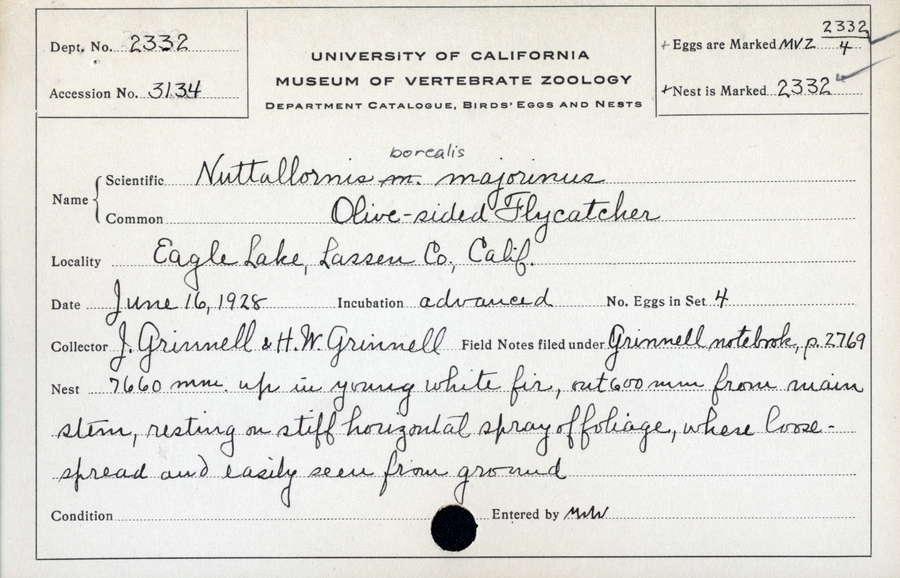 Dept. No. 2332
Accession No. 3134
UNIVERSITY OF CALIFORNIA
MUSEUM OF VERTEBRATE ZOOLOGY
DEPARTMENT CATALOGUE, BIRDS' EGGS AND NESTS
+ Eggs are Marked MVZ 2332/4
+ Nest is Marked 2332
borealis
Name { Scientific Nuttallornis m. majorinus
Common Olive-sided Flycatcher
Locality Eagle Lake, Lassen Co., Calif.
Date June 16, 1928 Incubation advanced No. Eggs in Set 4
Collector J. Grinnell & H.W. Grinnell Field Notes filed under Grinnell notebook, p. 2769
Nest 7660 mm. up in young white fir, out 600 mm from main
stem, resting on stiff horizontal spray of foliage, where loose-
spread and easily seen from ground
Condition Entered by